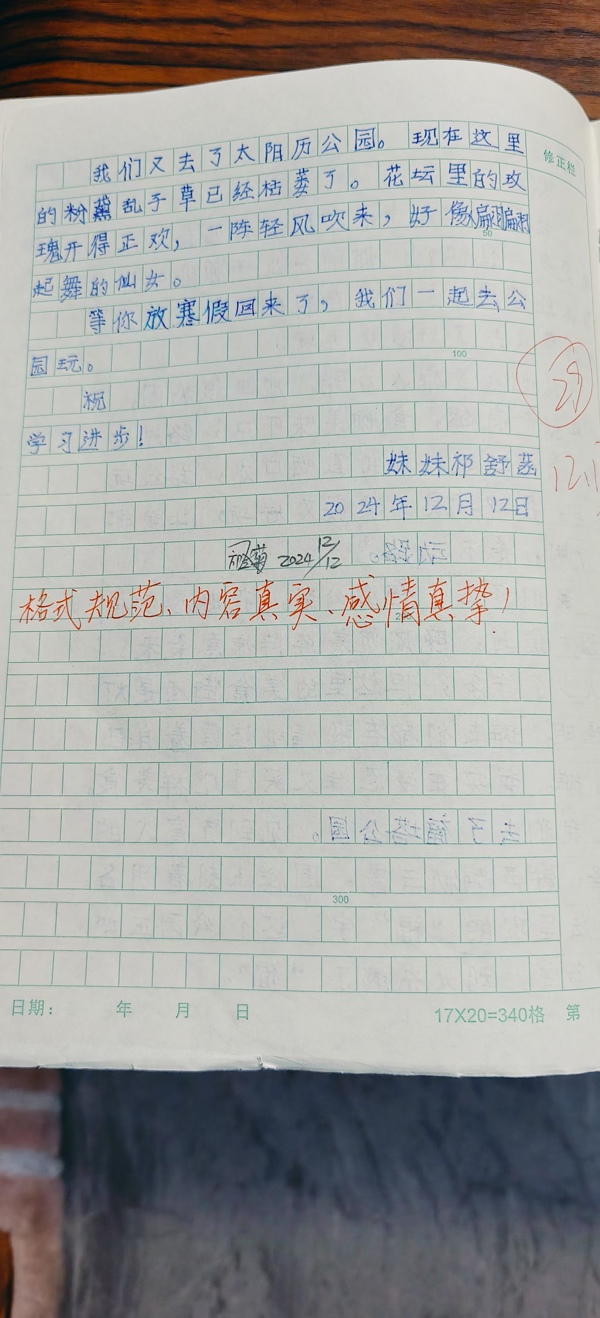 我们又去了太阳历公园。现在这里
修正栏
的粉黛乱子草已经枯萎了。花坛里的玫
瑰开得正欢，一阵轻风吹来，好像翩翩
50
起舞的仙女。
等你放寒假回来了，我们一起去公
园玩。
100
祝
29
学习进步！
妹妹祁舒菡
12.1
2024年12月12日
2024 12/12
格式规范、内容真实、感情真挚！
300
日期： 年 月 日
17X20=340格 第